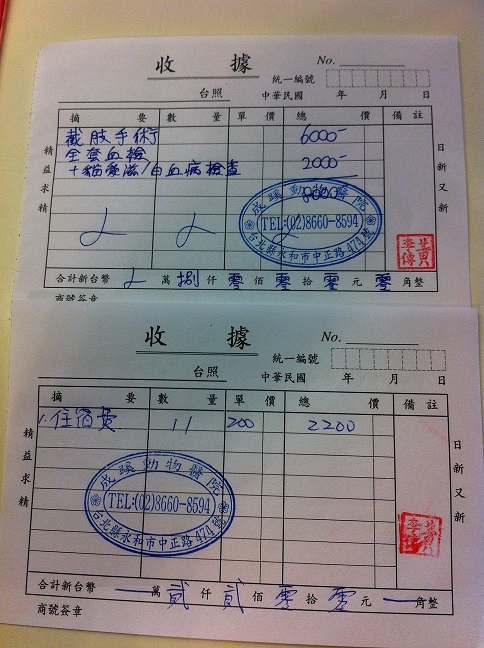 收據
No.
統一編號
台照 中華民國 年 月 日
摘要 數量 單價 總價 備註
截肢手術 6000-
全套血檢 2000-
+貓愛滋/白血病檢查
8000
成蹊動物醫院
TEL:(02)8660-8594
台北縣永和市中正路474號
精益求精
日新又新
合計新台幣 萬 捌 仟 零 佰 零 拾 零 元 零 角整
商號簽章
收據
No.
統一編號
台照 中華民國 年 月 日
摘要 數量 單價 總價 備註
1.住宿費 11 200 2200
成蹊動物醫院
TEL:(02)8660-8594
台北縣永和市中正路474號
精益求精
日新又新
合計新台幣 一 萬 貳 仟 貳 佰 零 拾 零 元 一 角整
商號簽章